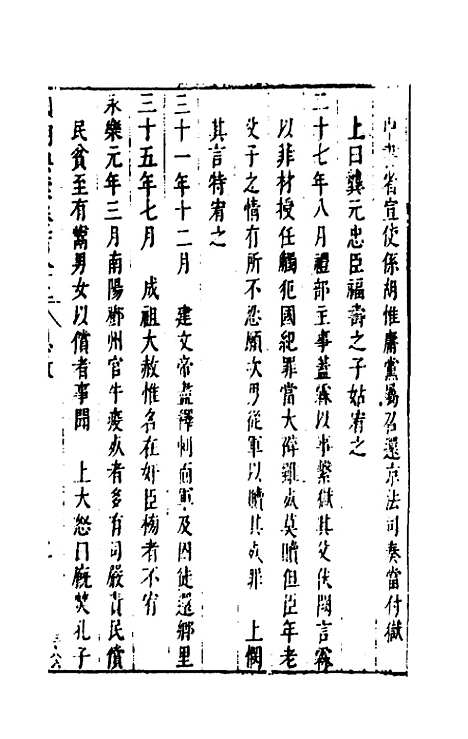 中書省宣使係胡惟庸黨舄名還京法司奏當付獄
上曰龔元忠臣福壽之子姑宥之
二十七年八月禮部主事蓋霖以事繫獄其父伏闕言霖
以菲材授任觸犯國紀罪當大辟雖死莫贖但臣年老
父子之情有所不忍願次男從軍以贖其死罪　上憫
其言特宥之
三十一年十二月　建文帝盡釋刺面軍及囚徒還鄉里
三十五年七月　成祖大赦惟名在奸臣榜者不宥
永樂元年三月南陽鄧州官牛疫死者多有司嚴責民償
民貧至有鬻男女以償者事聞　上大怒曰廐焚孔子